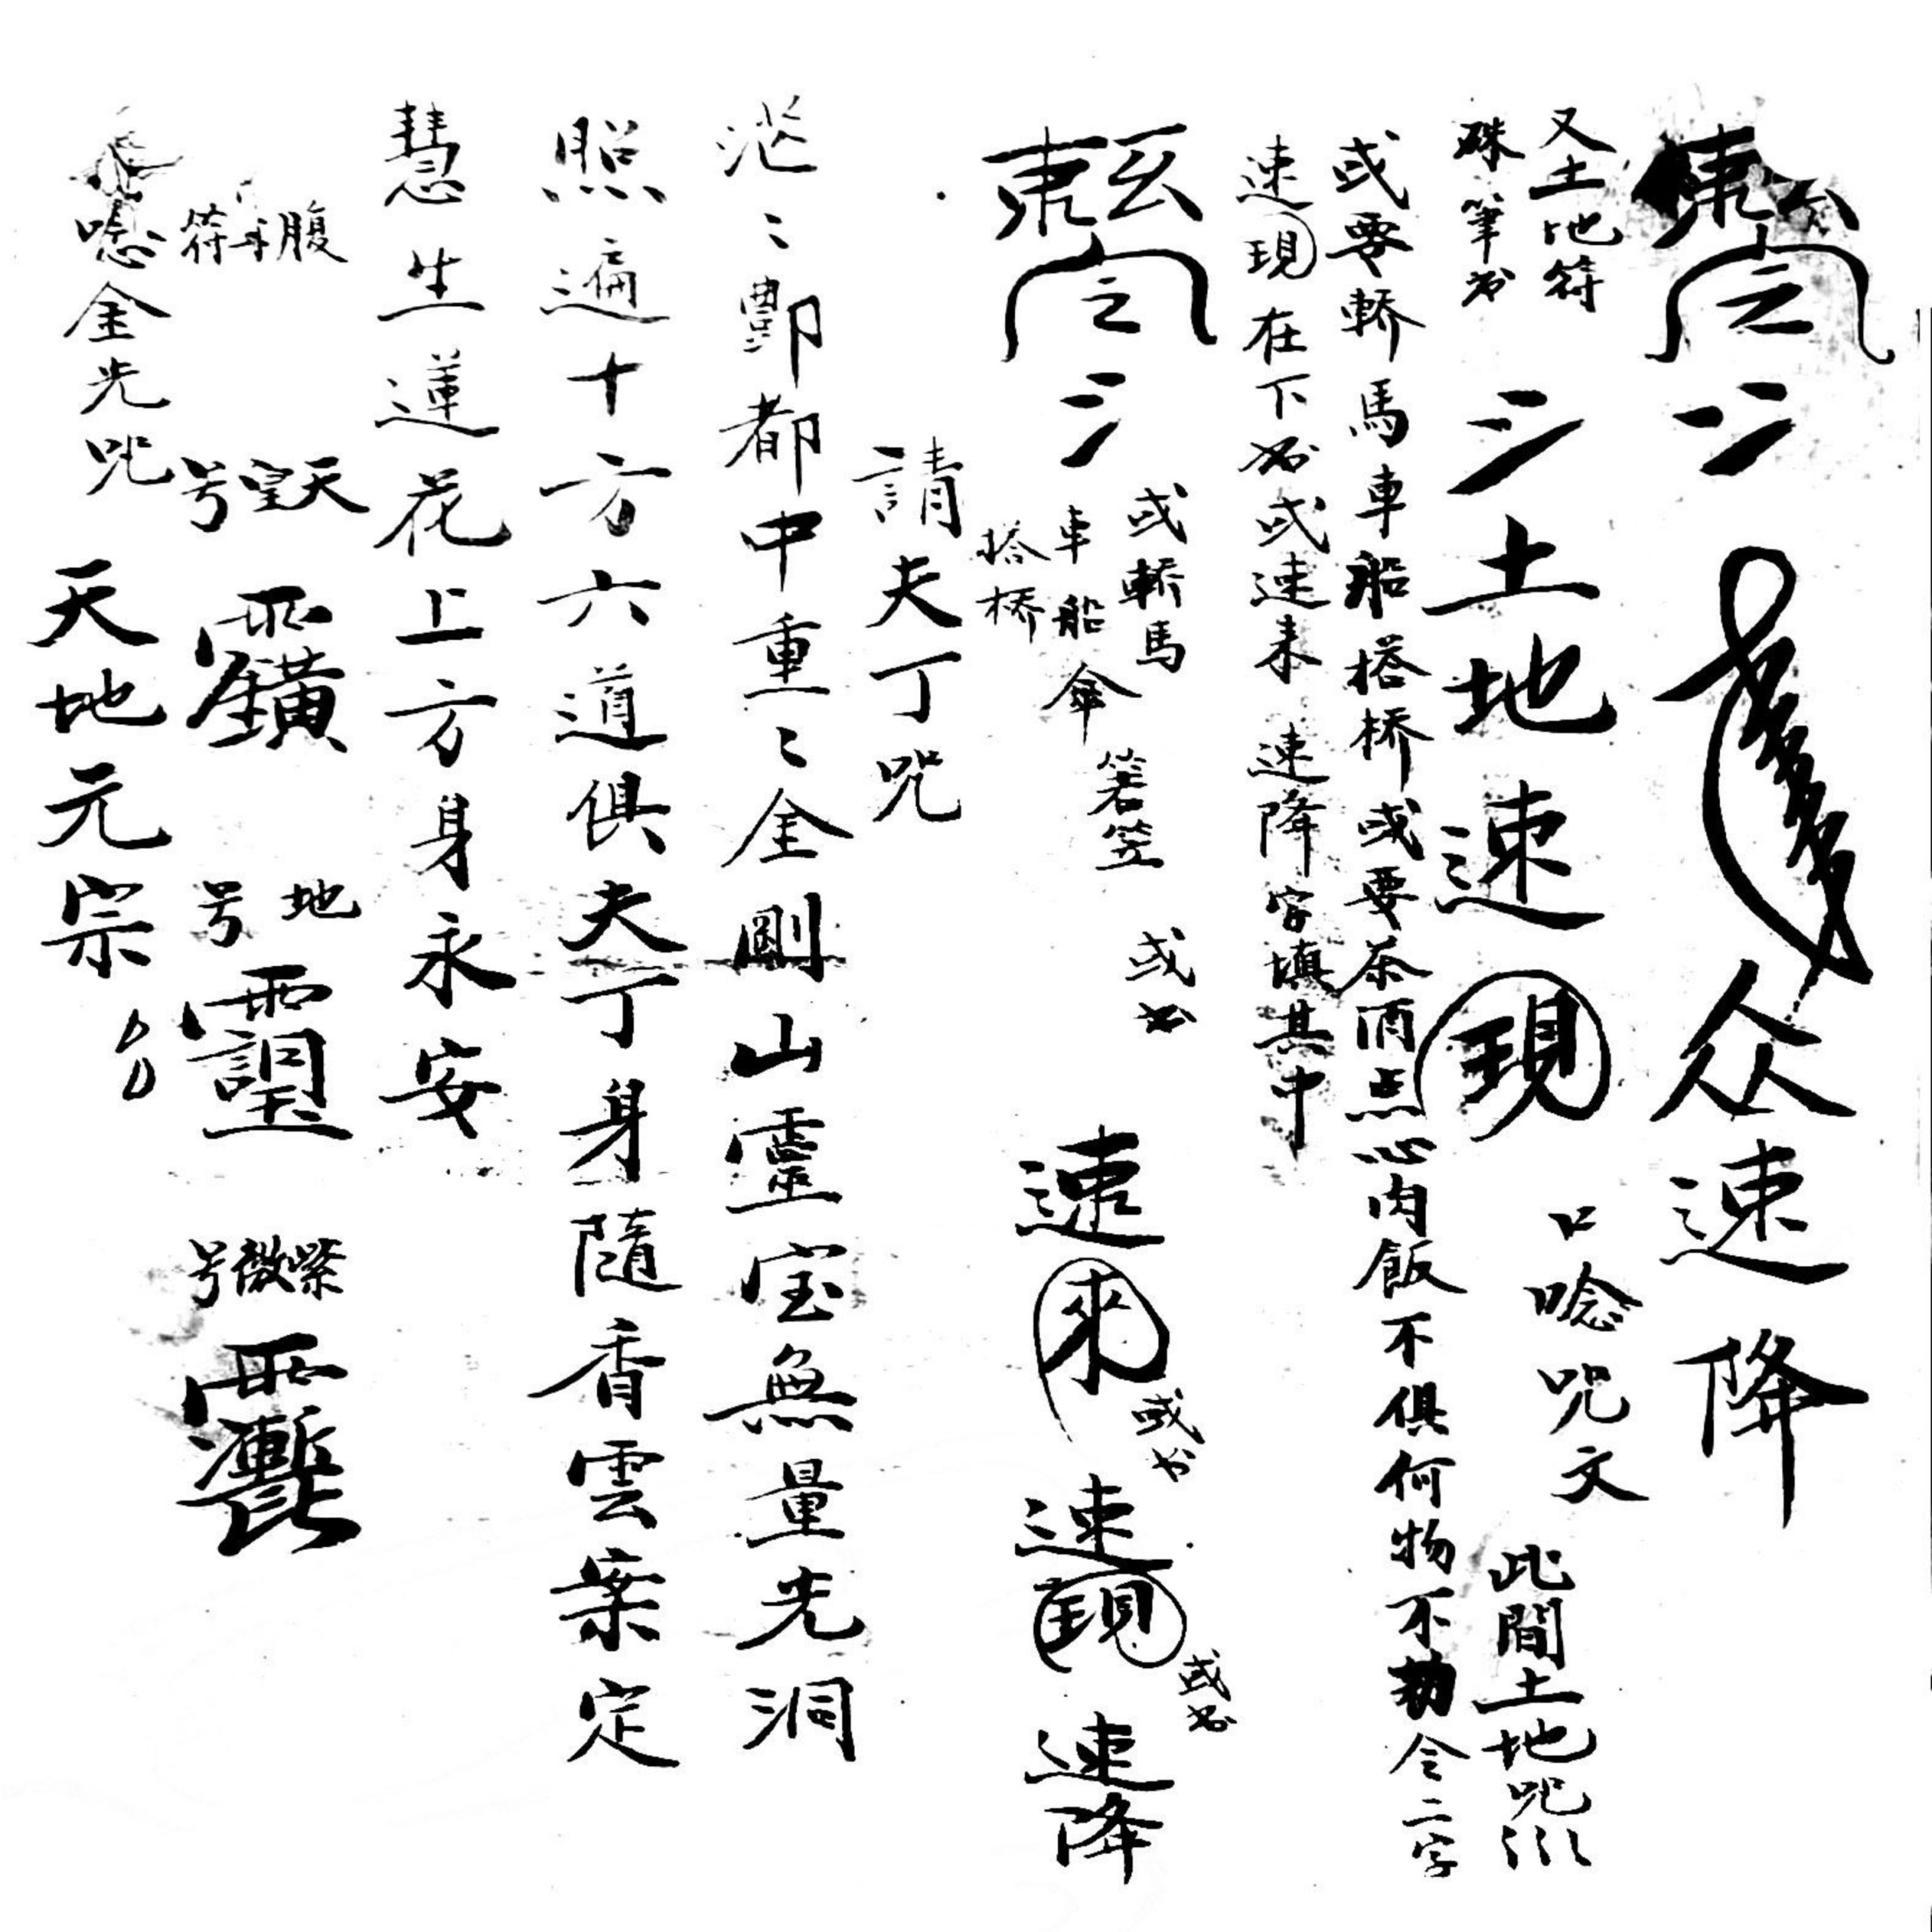 众速降
又土地符
硃筆书
土地速現
口唸咒文
此間土地咒
或要轎馬車船搭桥或要茶酒点心肉飯不俱何物不勅令二字
速現在下书或速来 速降字填其中
或轎馬
車船傘
搭桥
箬笠
或书
速來
或书
速現
或书
速降
請夫丁咒
茫〻酆都中重〻金剛山靈宝無量光洞
照遍十方六道俱夫丁身隨香雲案定
慧生蓮花上方身永安
腹
符
天皇号
地号
紫微号
唸金光咒
天地元宗